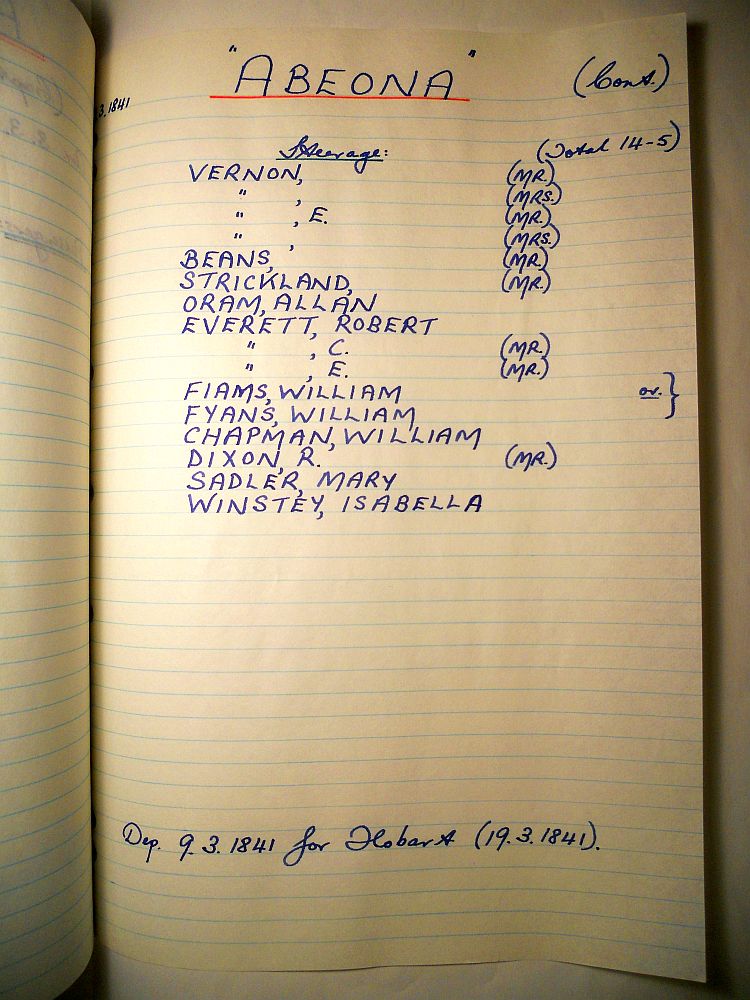 "ABEONA" (Cont.)
3.1841
Steerage: (Total 14-5)
VERNON, (MR.)
" , (MRS.)
" , E. (MR.)
" , (MRS.)
BEANS, (MR.)
STRICKLAND, (MR.)
ORAM, ALLAN
EVERETT, ROBERT
" , C. (MR.)
" , E. (MR.)
FIAMS, WILLIAM or. }
FYANS, WILLIAM
CHAPMAN, WILLIAM
DIXON, R. (MR.)
SADLER, MARY
WINSTEY, ISABELLA
Dep. 9.3.1841 for Hobart (19.3.1841).